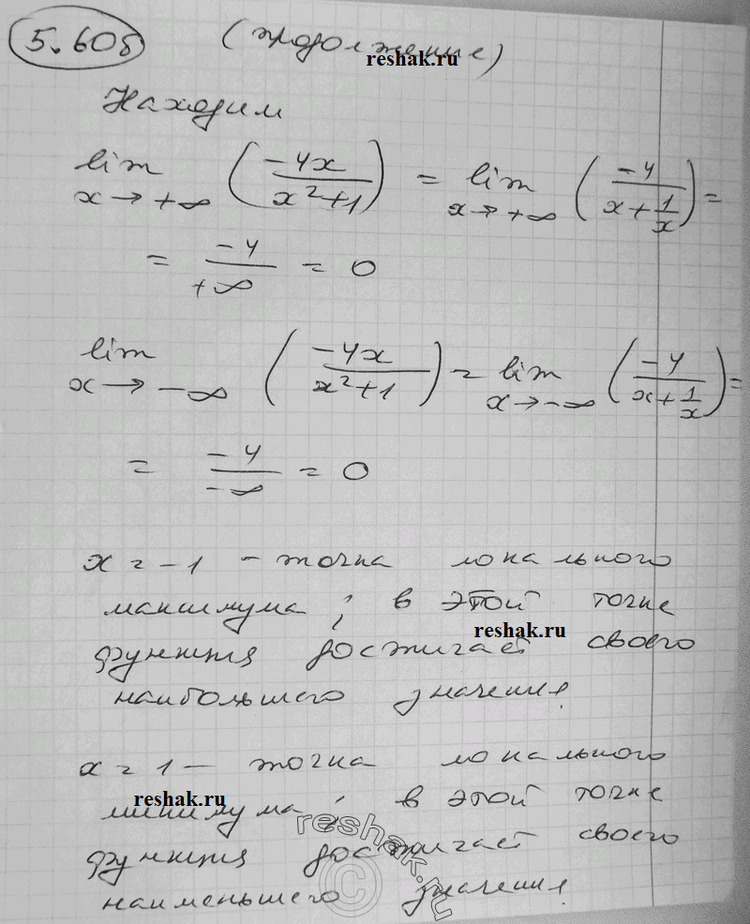 5.608 (продолжение)
reshak.ru
Находим
lim x→+∞ (-4x / x²+1) = lim x→+∞ (-4 / x + 1/x) =
= -4 / +∞ = 0
lim x→-∞ (-4x / x²+1) = lim x→-∞ (-4 / x + 1/x) =
= -4 / -∞ = 0
x = -1 - точка локального
максимума; в этой точке
reshak.ru
функция достигает своего
наибольшего значения.
x = 1 - точка локального
reshak.ru
минимума; в этой точке
reshak.ru
функция достигает своего
©
наименьшего значения.